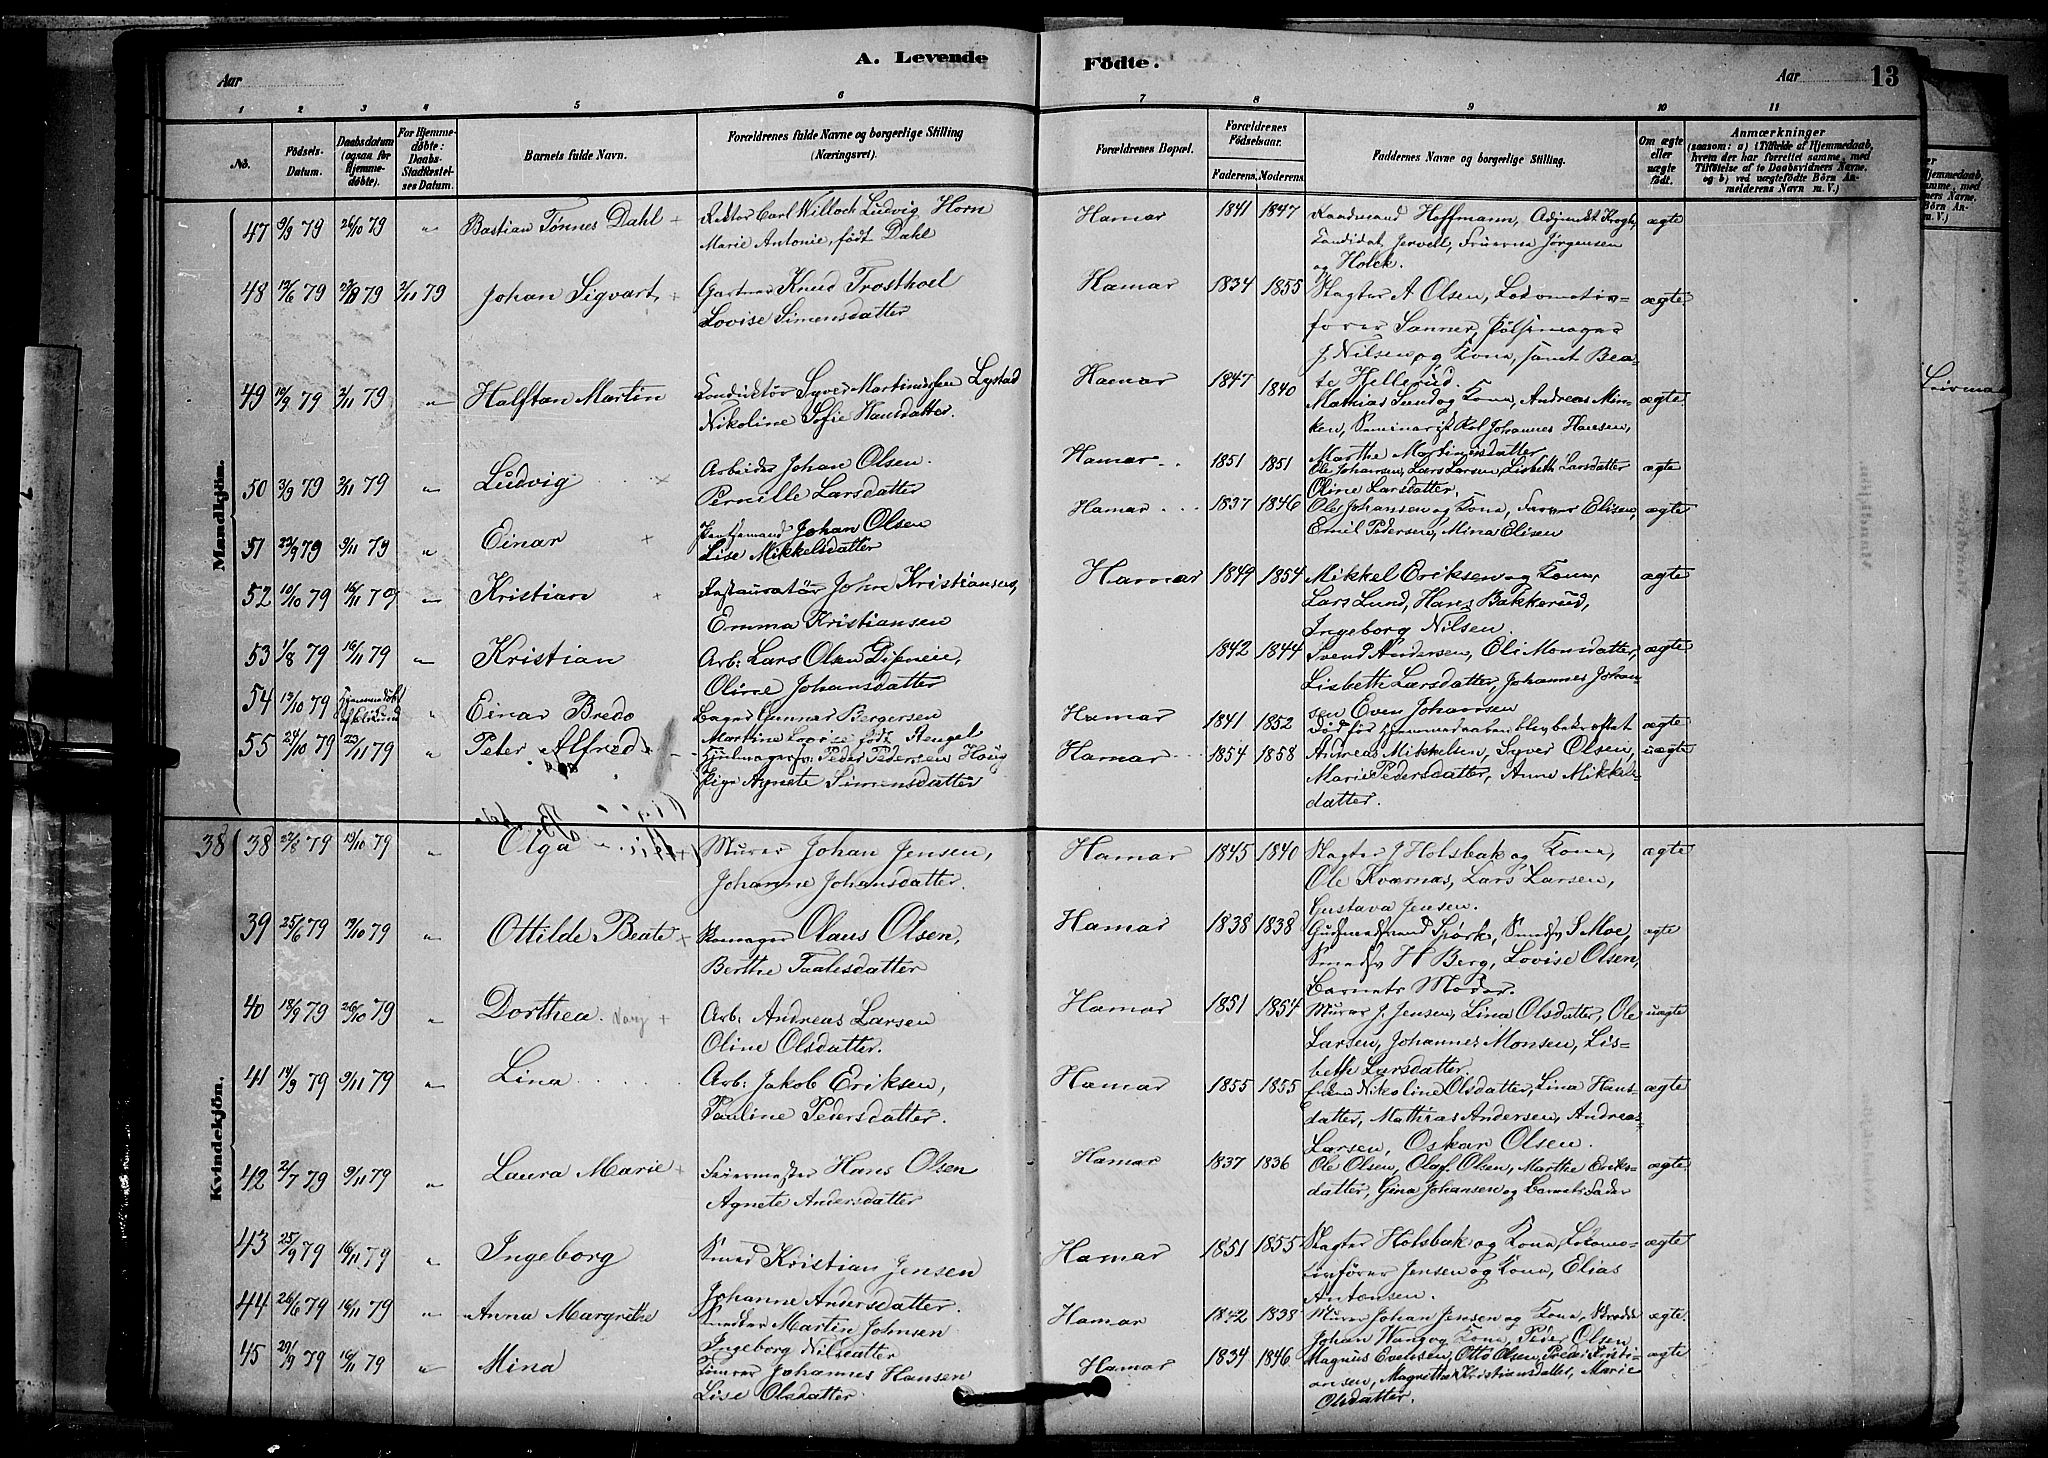 A. Levende Födte.
Aar
Aar 13
1 2 3 4 5 6 7 8 9 10 11
No. Födsels-Datum. Daabsdatum (ogsaa for Hjemme-döbte). For Hjemme-döbte: Daabs-Stadfæstel-ses Datum. Barnets fulde Navn. Forældrenes fulde Navne og borgerlige Stilling (Næringsvei). Forældrenes Bopæl. Forældrenes Födselsaar. Faderens. Moderens. Faddernes Navne og borgerlige Stilling. Om ægte eller uægte födt. Anmærkninger (saasom: a) i Tilfælde af Hjemmedaab, hvem der har forrettet samme, med Tilföielse af to Daabsvidners Navne, og b) ved uægtefödte Börn Anmelderens Navn m. V.)
Mandkjön.
47 9/9 79 26/10 79 " Bastian Tönnes Dahl + Rektor Carl Willoch Ludvig Horn Hamar 1841 1847 Hoffmann, Adjunkt Krogh, ægte
Marie Antonie, født Dahl Kandidat Jervell, Fruerne Jörgensen
og Holck.
48 12/6 79 23/8 79 2/11 79 Johan Sigvart + Gartner Knud Trosthoel Hamar 1834 1855 Slagter A Olsen, Lokomotiv- ægte
Lovise Simensdatter förer Sanner, Pölsemager
J Nilsen og Kona, samt Bea-
te Hjellerud.
49 17/9 79 2/11 79 " Halftan Martin Konduktör Syver Martinussen Lystad Hamar 1847 1840 Mathias Lund og Kona, Andreas Min- ægte
Nikoline Sofie Hansdatter. ken, Seminarist Johannes Hansen,
Marthe Martinusdatter
50 3/9 79 2/11 79 " Ludvig + Arbeider Johan Olsen. Hamar 1851 1851 Ole Johansen, Lars Larsen, Lisbeth Larsdatter ægte
Pernille Larsdatter Oline Larsdatter.
51 22/9 79 9/11 79 " Einar + Johan Olsen Hamar 1837 1846 Ole Johansen og Kona, Elisen, ægte
Lise Mikkelsdatter Emil Pedersen, Mina Elisen
52 10/10 79 16/11 79 " Kristian + Restauratör John Kristiansen, Hamar 1849 1854 Mikkel Eriksen og Kona, ægte
Emma Kristiansen Lars Lund, Hans Bakkerud,
Ingeborg Nilsen
53 1/8 79 16/11 79 " Kristian Arb: Lars Olsen 1842 1844 Svend Andersen, Eli Monsdatter, ægte
Oline Johansdatter Lisbeth Larsdatter, Johannes Johan-
sen Even Johansen
54 13/10 79 Hjemmedöbt " Einar Bredo Bager Gunnar Bergersen Hamar 1841 1852 Död för Hjemmedaaben blev bekræftet ægte
Martine Lovise født Stengel
55 24/10 79 23/11 79 " Peter Alfred + Hjulmagersv. Peder Pedersen Haug Hamar 1854 1858 Andreas Mikkelsen, Syver Olsen, uægte
Pige Agnete Simensdatter Marie Pedersdatter, Anne Mikkels-
datter.
Kvindekjön.
38 38 22/8 79 19/10 79 " Olga Murer Johan Jensen, Hamar 1845 1840 Slagter J Holsbak og Kona, ægte
Johanne Johansdatter. Ole Kværnæs, Lars Larsen,
Gustava Jensen.
39 25/6 79 19/10 79 " Ottilde Beate + Skomager Olaus Olsen, Hamar 1838 1838 Björk, S Moe, ægte
Berthe H Berg, Lovise Olsen,
Barnets Moder.
40 18/9 79 26/10 79 " Dorthea + Arb: Andreas Larsen Hamar 1851 1854 Murer J. Jensen, Lina Olsdatter, Ole uægte
Oline Olsdatter. Larsen, Johannes Monsen, Lis-
beth Larsdatter.
41 14/9 79 9/11 79 " Lina Arb: Jakob Eriksen, Hamar 1855 1855 Nikoline Olsdatter, Lina Hans- ægte
Pauline Pedersdatter. datter, Mathias Andersen, Andreas
Larsen, Oskar Olsen.
42 2/7 79 9/11 79 " Laura Marie + Feiermester Hans Olsen Hamar 1837 1836 Ole Olsen, Olaf Olsen, Marthe Eriks- ægte
Agnete Andersdatter datter, Gina Johansen og Barnets Fader
43 25/9 79 16/11 79 " Ingeborg Smed Kristian Jensen Hamar 1851 1855 Slagter Holsbak og Kona, Lokomo- ægte
Johanne Andersdatter. tivförer Jensen og Kona, Elias
Antonsen.
44 26/6 79 16/11 79 " Anna Margrethe Martin Johnsen Hamar 1842 1838 Murer Johan Jensen og Kona, ægte.
Ingeborg Nilsdatter Johan Wang og Kona, Peder Olsen
45 29/9 79 16/11 79 " Mina Tömrer Johannes Hansen Hamar 1834 1846 Magnus Evensen, Otto Olsen, ægte
Lise Olsdatter. Magrethe Kristiansdatter, Marie
Olsdatter.